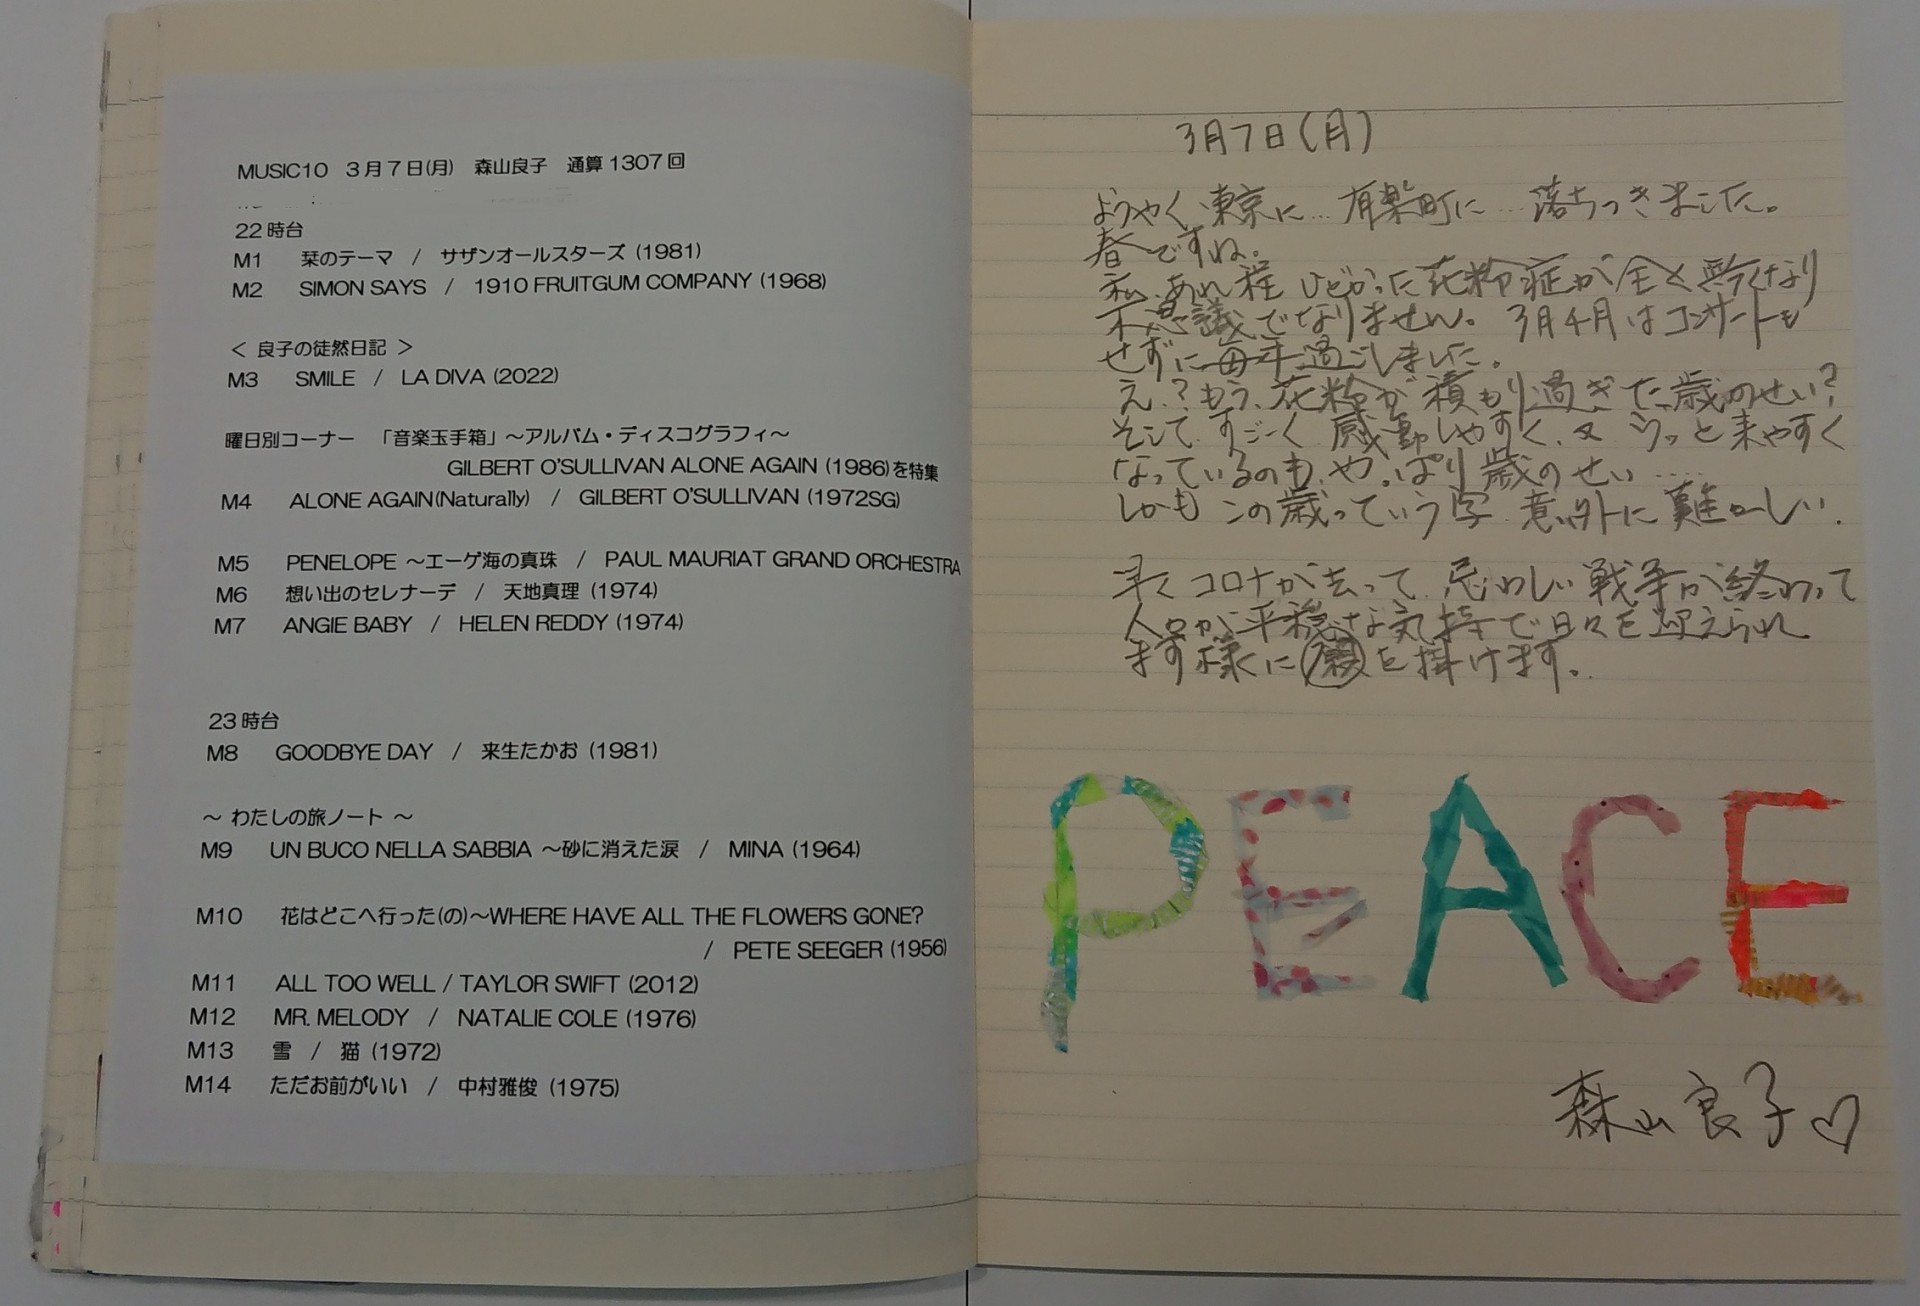 MUSIC10 3月7日(月) 森山良子 通算1307回
22時台
M1 栞のテーマ / サザンオールスターズ (1981)
M2 SIMON SAYS / 1910 FRUITGUM COMPANY (1968)
< 良子の徒然日記 >
M3 SMILE / LA DIVA (2022)
曜日別コーナー 「音楽玉手箱」～アルバム・ディスコグラフィ～
GILBERT O'SULLIVAN ALONE AGAIN (1986)を特集
M4 ALONE AGAIN(Naturally) / GILBERT O'SULLIVAN (1972SG)
M5 PENELOPE ～エーゲ海の真珠 / PAUL MAURIAT GRAND ORCHESTRA
M6 想い出のセレナーデ / 天地真理 (1974)
M7 ANGIE BABY / HELEN REDDY (1974)
23時台
M8 GOODBYE DAY / 来生たかお (1981)
～ わたしの旅ノート ～
M9 UN BUCO NELLA SABBIA ～砂に消えた涙 / MINA (1964)
M10 花はどこへ行った(の)～WHERE HAVE ALL THE FLOWERS GONE?
/ PETE SEEGER (1956)
M11 ALL TOO WELL / TAYLOR SWIFT (2012)
M12 MR. MELODY / NATALIE COLE (1976)
M13 雪 / 猫 (1972)
M14 ただお前がいい / 中村雅俊 (1975)
3月7日(月)
ようやく、東京に…有楽町に…落ちつきました。
春ですね。
私、あれ程ひどかった花粉症が全く無くなり
不思議でなりません。3月4月はコンサートも
せずに毎年過ごしました。
え、?もう、花粉が積もり過ぎた歳のせい?
そして、すごーく感動しやすく、又 ウッと来やすく
なっているのも、やっぱり歳のせい……
しかもこの歳っていう字、意外に難かしい.
早くコロナが去って、忌わしい戦争が終わって
人々が平穏な気持で日々を迎えられ
ます様に 願を掛けます。
PEACE
森山良子♡